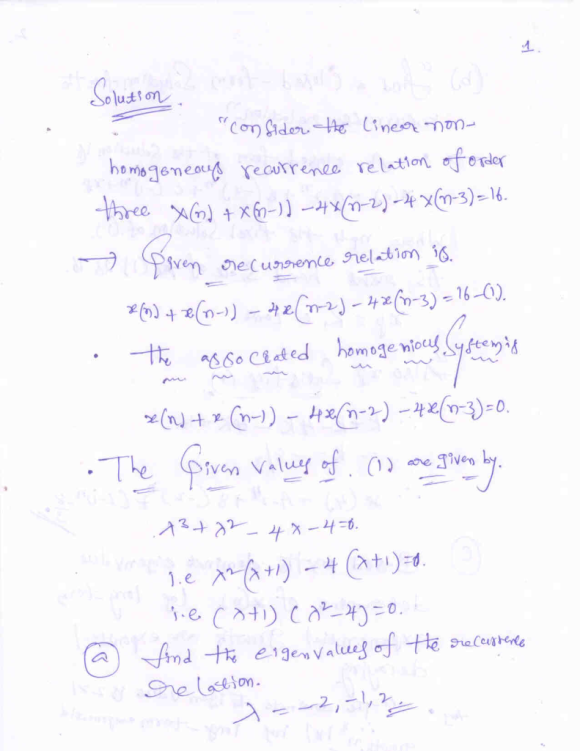 1.
Solution.
"Consider the linear non-
homogeneous recurrence relation of order
three x(n) + x(n-1) - 4x(n-2) - 4x(n-3) = 16.
→ Given recurrence relation is.
x(n) + x(n-1) - 4x(n-2) - 4x(n-3) = 16 -(1).
• the associated homogenious System is
x(n) + x(n-1) - 4x(n-2) - 4x(n-3) = 0.
• The Given values of (1) are given by.
λ³ + λ² - 4λ - 4 = 0.
i.e λ²(λ+1) - 4(λ+1) = 0.
i.e. (λ+1) (λ² - 4) = 0.
(a) find the eigenvalues of the recurrence
relation.
λ = -2, -1, 2